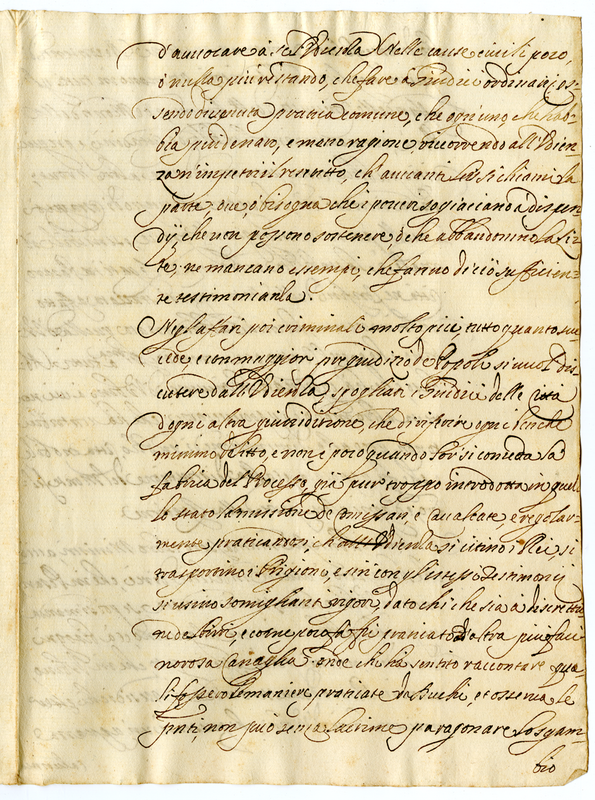 d'avvocare à se l'Udienza. Nelle cause civili però,
ò nulla più restando, che fare à Giudici ordinarij, es-
sendo divenuta pratica comune, che ogn'uno, che hab-
bia più denaro, e meno ragione, ricorrendo all'Udien-
za n'impetri il rescritto, ch'avvanti sé si chiami la
parte, ove, ò bisogna che i poveri sogiaciano à dispen-
dij, che non possono sostenere, ò che abbandonino la li-
te: ne mancano essempi, che fanno di ciò sufficien-
te testimonianza.
Negl'affari poi criminali molto più tutto quanto suc-
cede e con maggiori pregiuditio de Popoli si vuol dis-
cutere dall'Udienza, spogliati i Giudici delle
d'ogni altra giurisditione, che di riferire ogni benche
minimo delitto, e non è però quando lor si conceda la
fabrica del Processo, già pur troppo introdotta in quel-
lo stato la missione de Comissari, e Cavalcate, e regolar-
mente praticandosi, ch'all'Udienza si citino i Rei, si
trasportino i prigioni, e sin con gl'istessi Testimonij
si usino somiglianti rigori, dato chi che sia à discretio-
ne de sbirri, e come però la più graniata d'altra più faci-
norosa Canaglia. onde chi hà sentito raccontare qua-
li fossero le maniere praticate da Duchi, et osserva le
pnti, non può senza lacrime paragonare lo scam-
bio